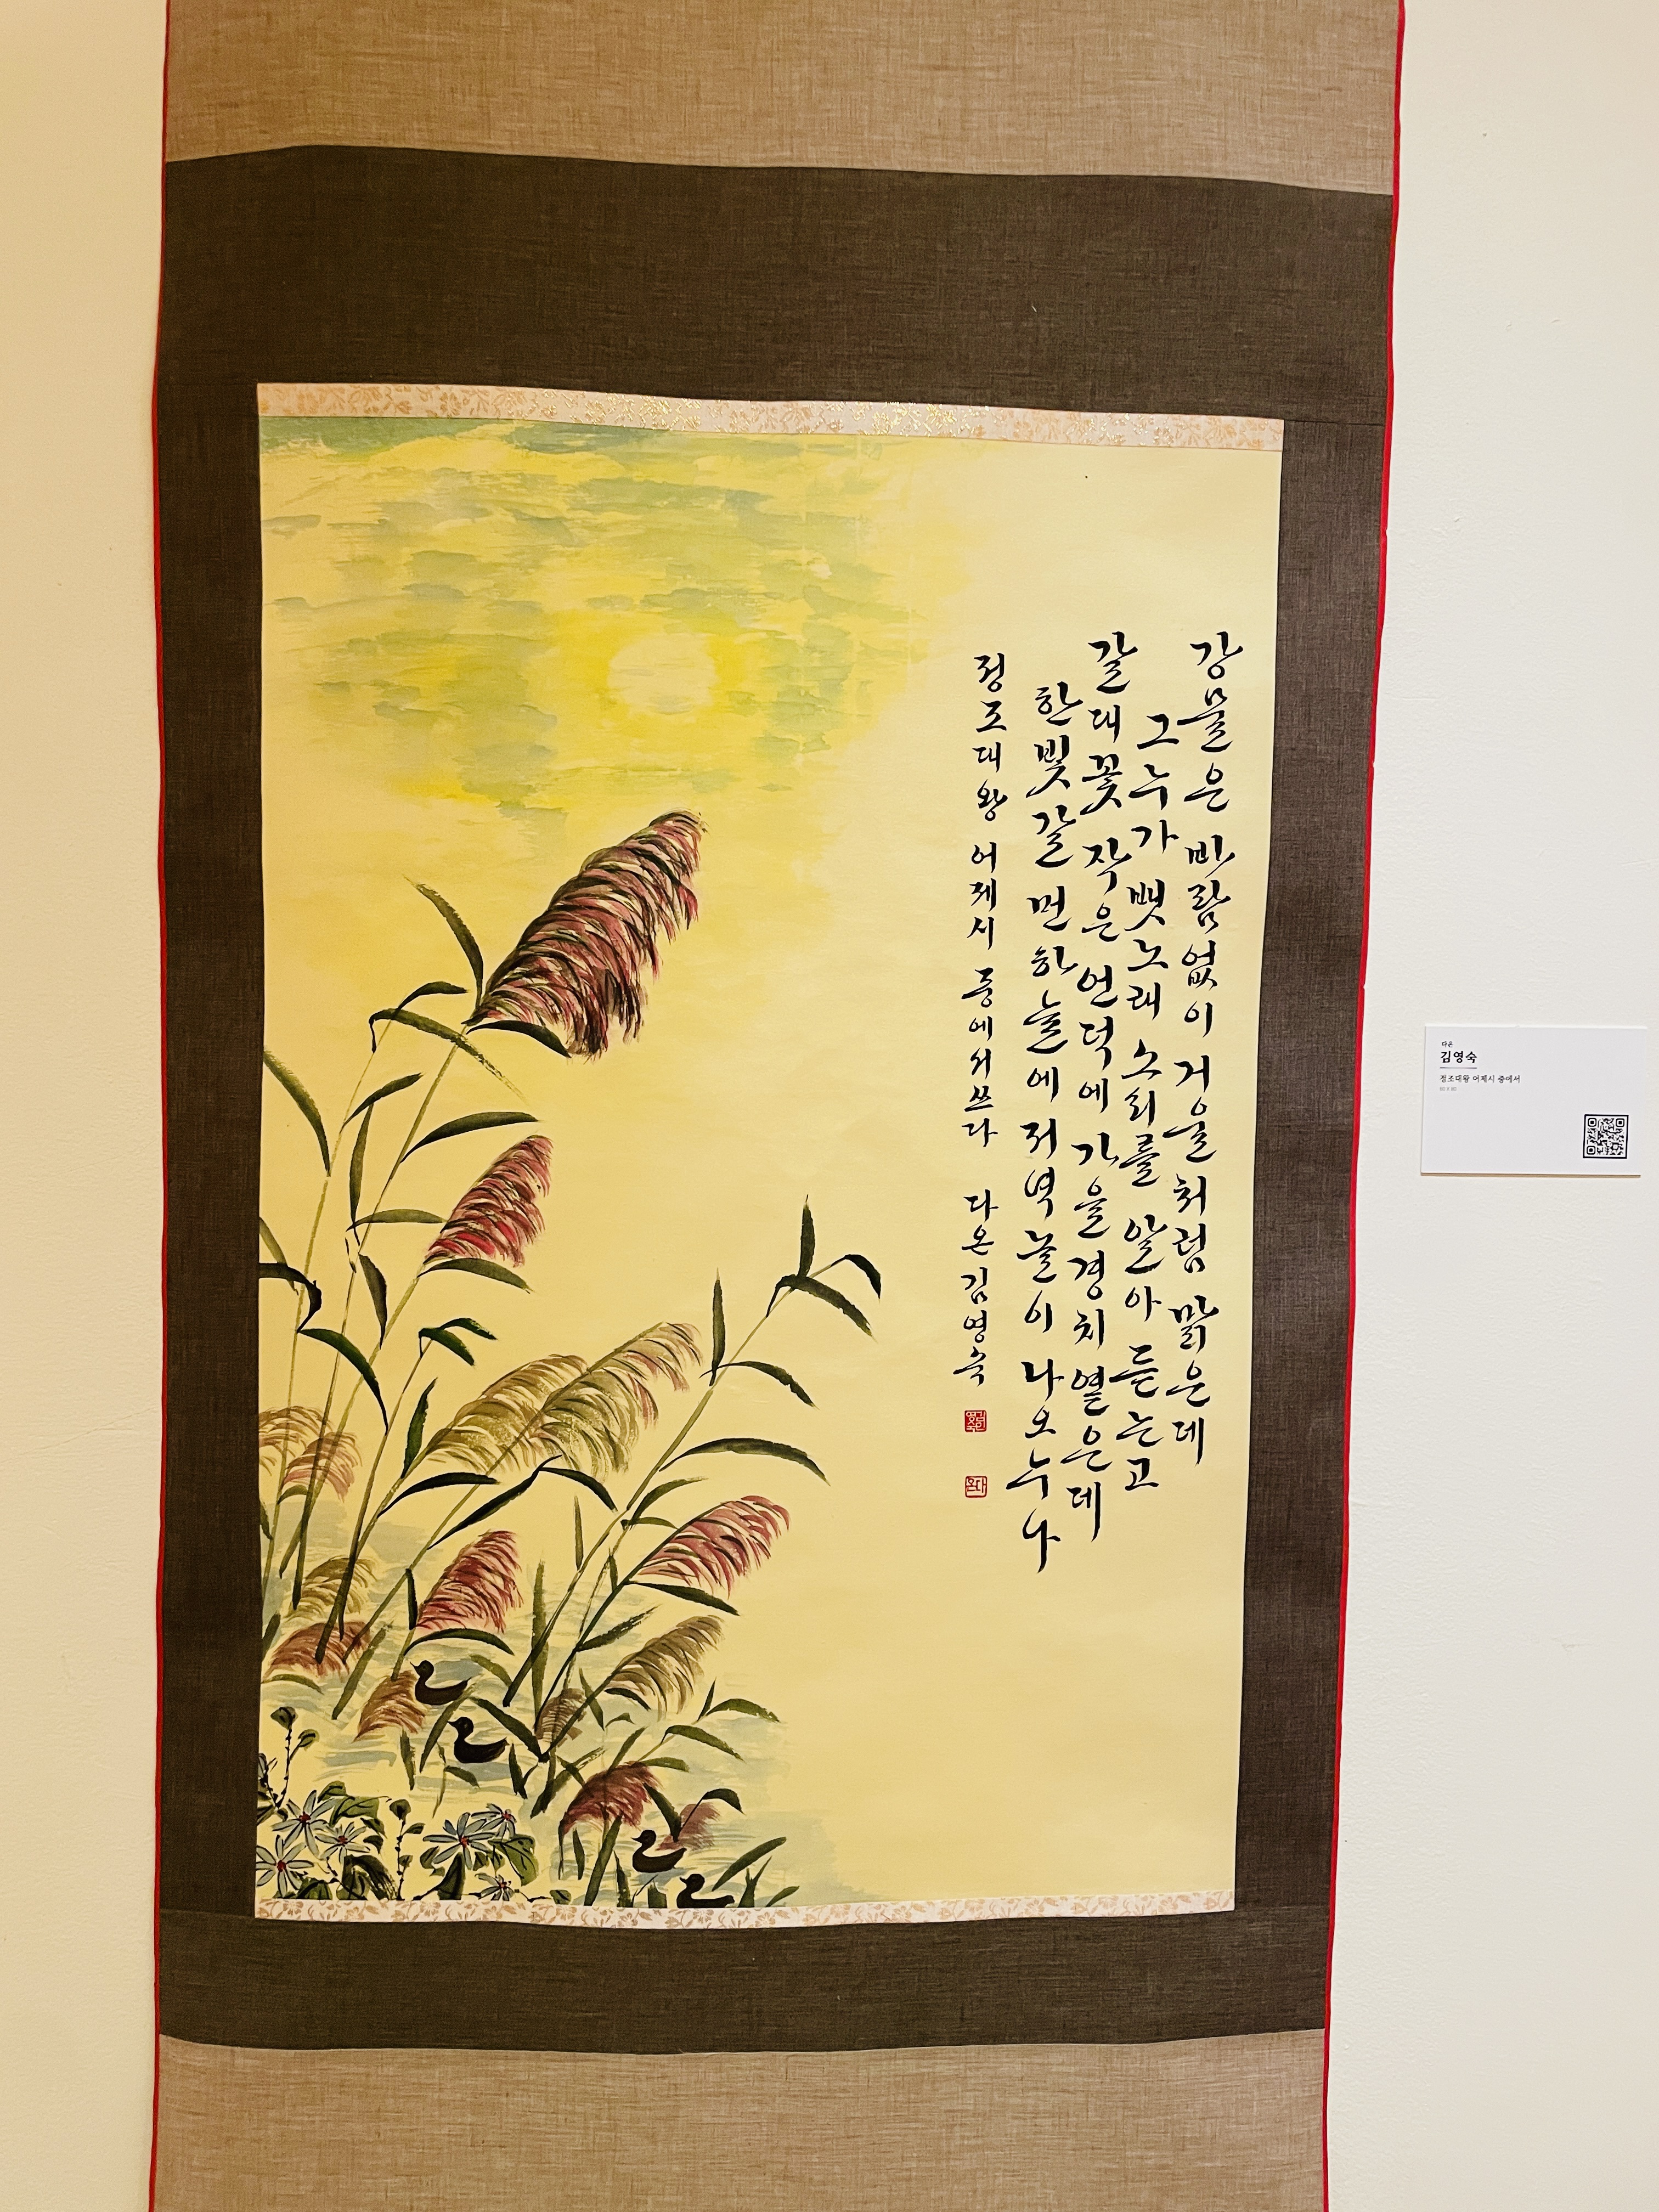 강물은 바람없이 거울처럼 맑은데
그 누가 뱃노래 소리를 알아 듣는고
갈대꽃 작은 언덕에 가을 경치 옅은데
한 빛깔 먼 하늘에 저녁 놀이 나오누나
정조대왕 어제시 중에서 쓰다 다온 김영숙
다온
김영숙
정조대왕 어제시 중에서